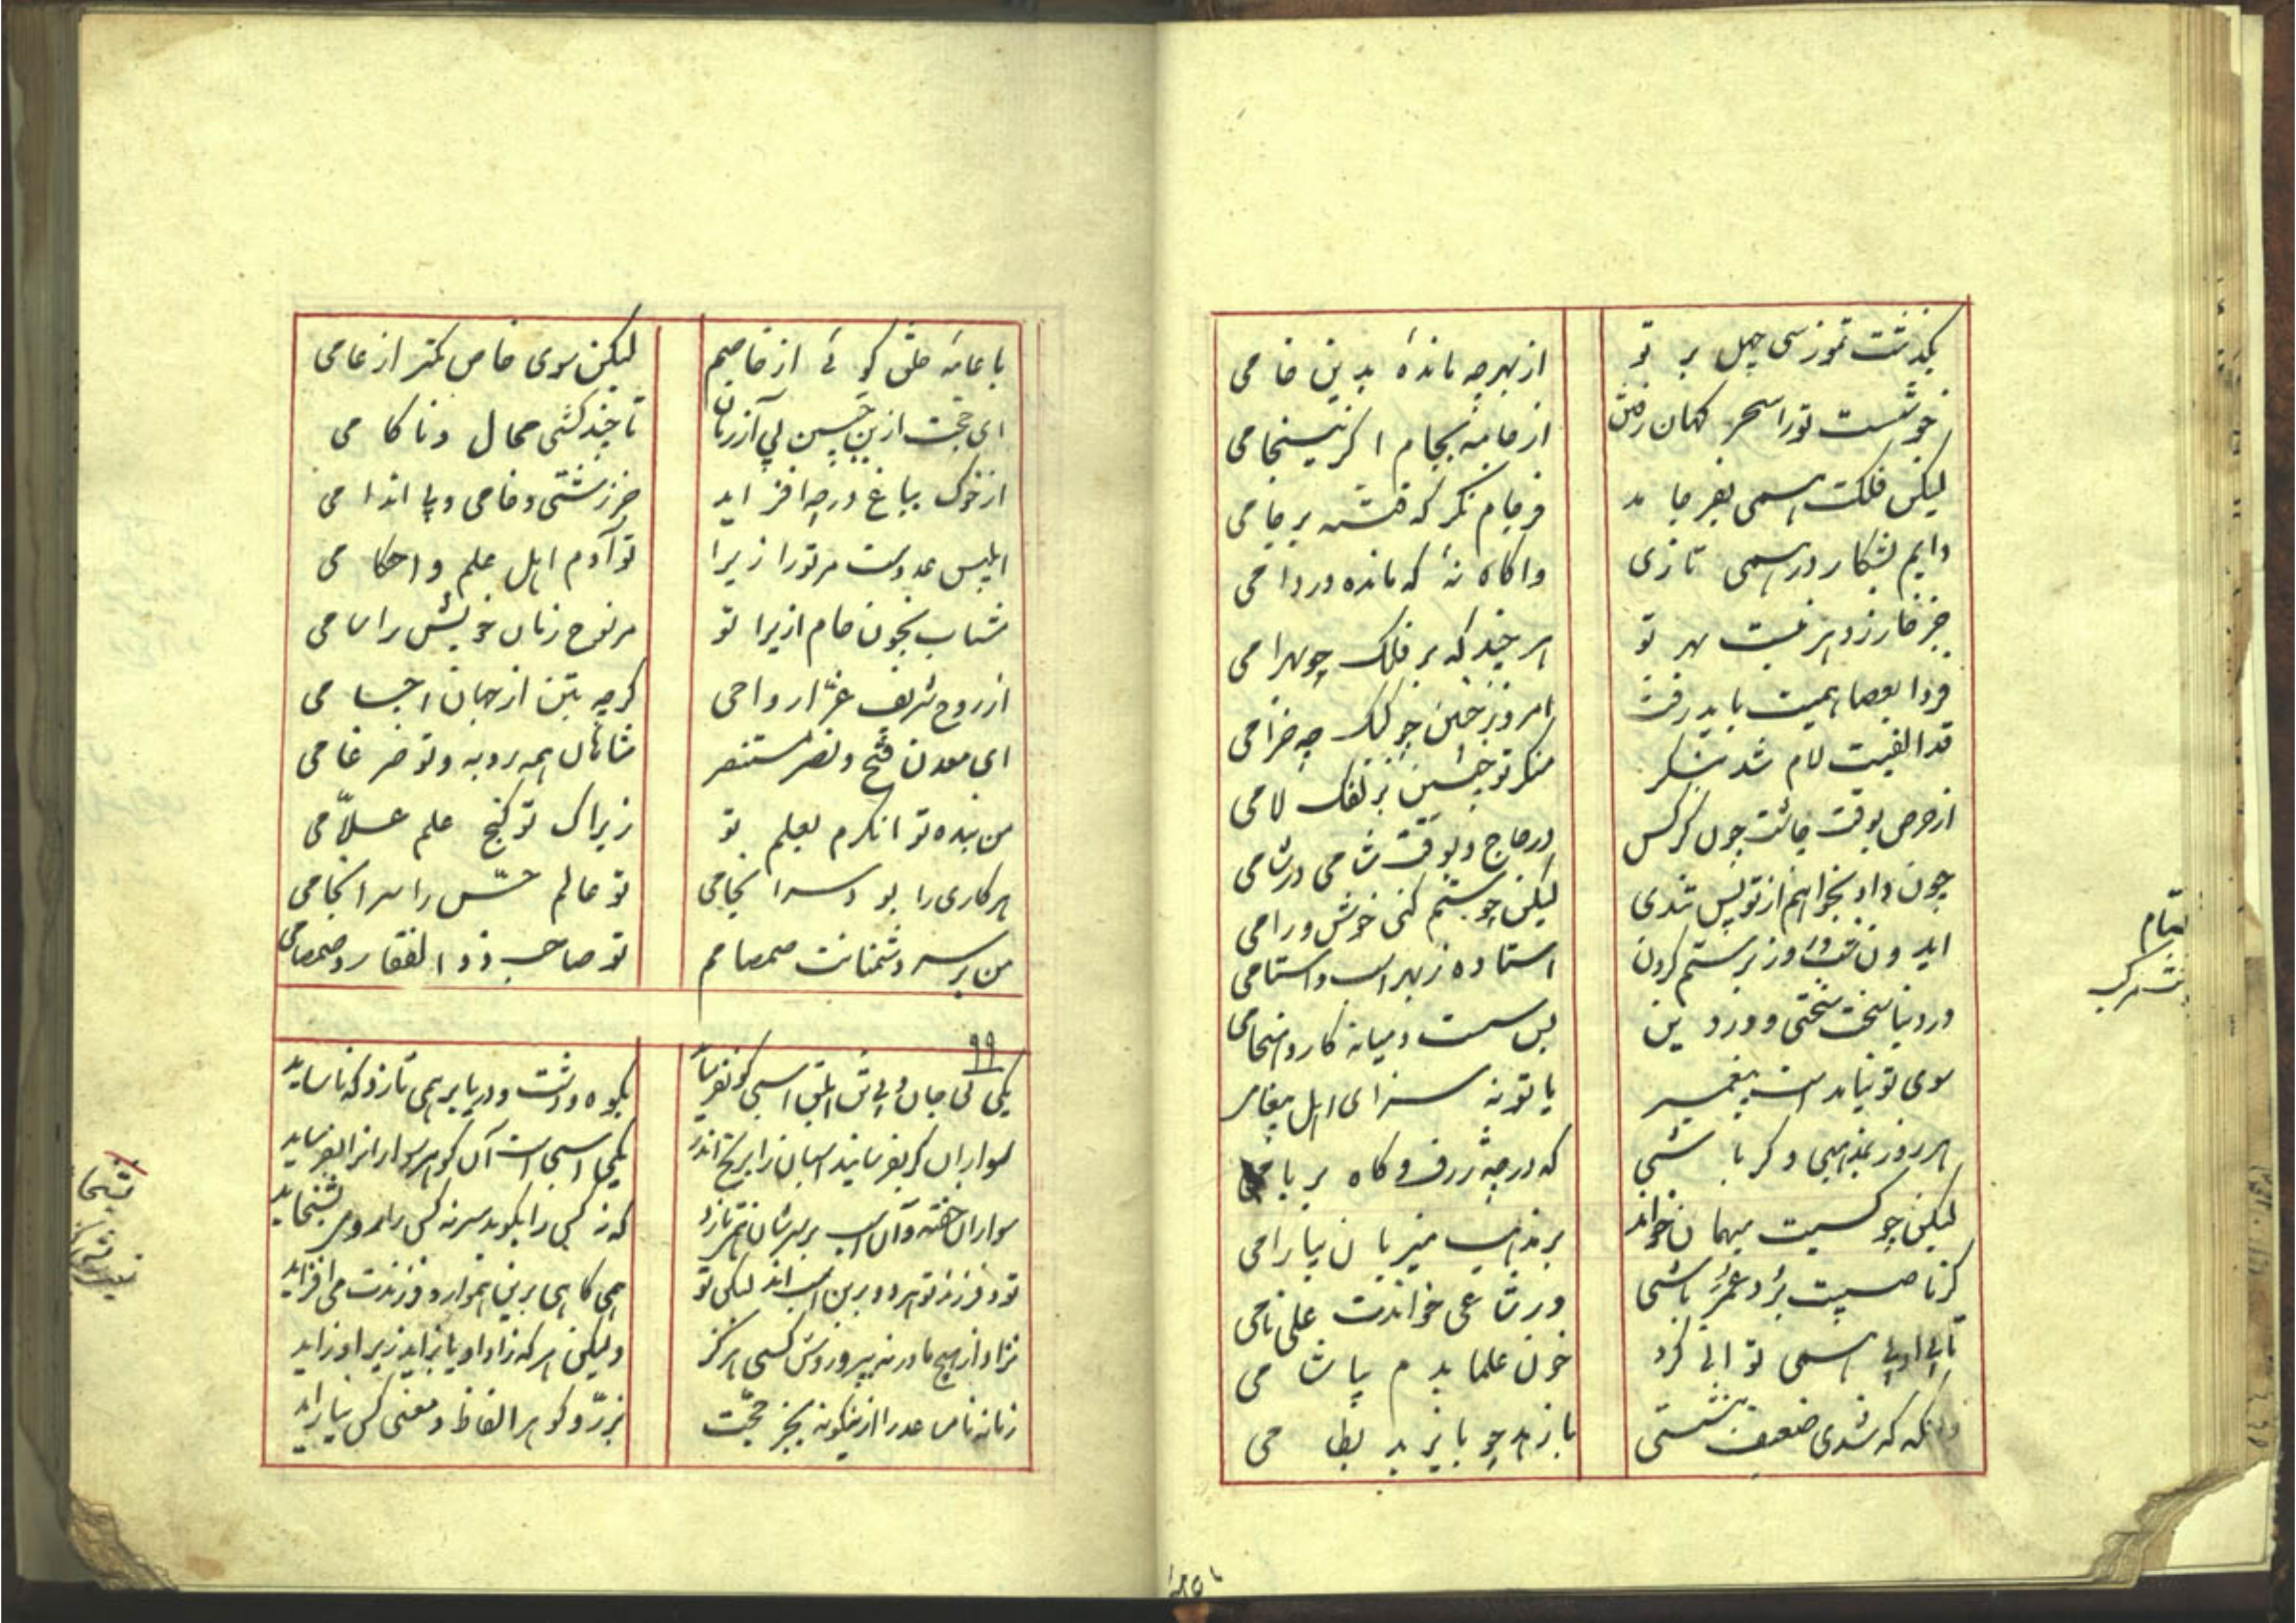 بگذشت تموز سی چهل بر تو
از بهر چه ماندهٔ بدین خامی
خوشست تو را سحر کهان رفتن
از جامه بجام اگر
لیکن فلکت همی بفرجامد
فرجام نگر که فتنه بر جامی
دایم بشکار در همی تازی
واگاه نهٔ که مانده در دامی
جز خار زدهر نیست بهر تو
هر چند که بر فلک چو بهرامی
فردا بعصا همیت باید رفت
امروز چنین چو کبک چه خرامی
قد الفیت لام شد بنگر
منگر تو چنین بزلفک لامی
از حرص بوقت چاشت چون کرکس
در حاج و بوقت شامی در شامی
چون داد بخواهم از تو بس تندی
لیکن چو ستم کنی خوش و رامی
ایدون شب و روز بر ستم کردن
استاده ز بهر اسب و استامی
در دنیا سخت سختی و در دین
بس سست و میانه کار و
سوی تو نیامدست پیغمبر
یا تو نه سزای اهل پیغامی
هر روز بمذهبی دگر باشی
که در چه ژرف و گاه بر بامی
لیکن چو کسیت میهمان خواند
بر مذهب میزبان بیارامی
گر ناصبیت برد عمر باشی
ور شاعی خواندت علی نامی
تا بی ادبی همی توانی کرد
خون علما بدم بیاشامی
وانگه که شدی ضعف بنشستی
با زهد چو با یزید بسطامی
بتمام
با عامهٔ خلق گوئی از خاصم
لیکن سوی خاص کمتر از عامی
ای حجت ازین چنین بی آزرمان
تا چند کشی محال و ناکامی
از خوک بباغ در چه افزاید
جز زشتی و خامی و بی اندامی
ابلیس عدوست مر تو را زیرا
تو آدم اهل علم و احکامی
مشتاب بخون خام ازیرا تو
مر نوح زمان خویش را سامی
از روح شریف عزّ ارواحی
گرچه بتن از جهان اجسامی
ای معدن فتح و نصر مستنصر
شاهان همه روبه و تو ضرغامی
من بنده توانگرم بعلم تو
زیراک تو گنج علم علّامی
هر کاری را بود سرانجامی
تو عالم حسّ را سرانجامی
من بر سر دشمنانت صمصامم
تو صاحب ذوالفقار و صمصامی
۹۹
یکی بی جان و بی تن ابلق اسبی کو نفرساید
بکوه و دشت و دریا بر همی تازد که ناساید
سواران گر بفرسایند اسبان را برنج اندر
یکی اسبی است آن کو مر سواران را بفرساید
سواران خفته و آن اسب بر سرشان همی تازد
که نه کس را بکوبد سر نه کس را روی بشخاید
تو و فرزند تو هر دو برین اسب اند لیکن تو
همی کاهی برین هموار و فرزندت می افزاید
نزاد از هیچ مادر نه بپروردش کسی هرگز
ولیکن هر که زاد او یا بزاید زیر او زاید
زمانه نام عدرا از
بزرّ و گوهر الفاظ و معنی کس نیاراید